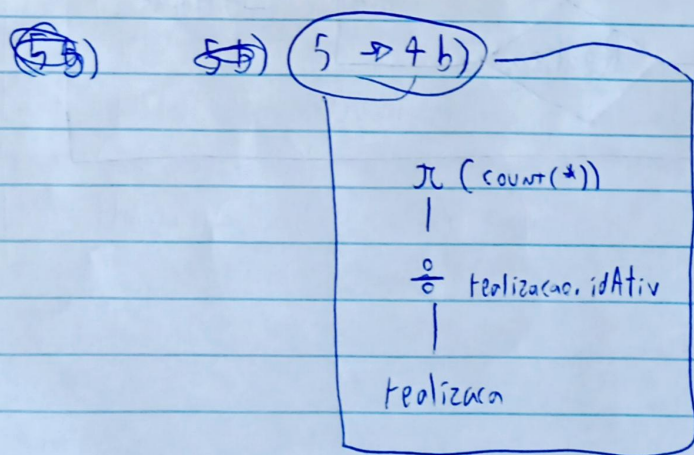 5 → 4 b)
π (count(*))
÷ realizacao.idAtiv
realizaca